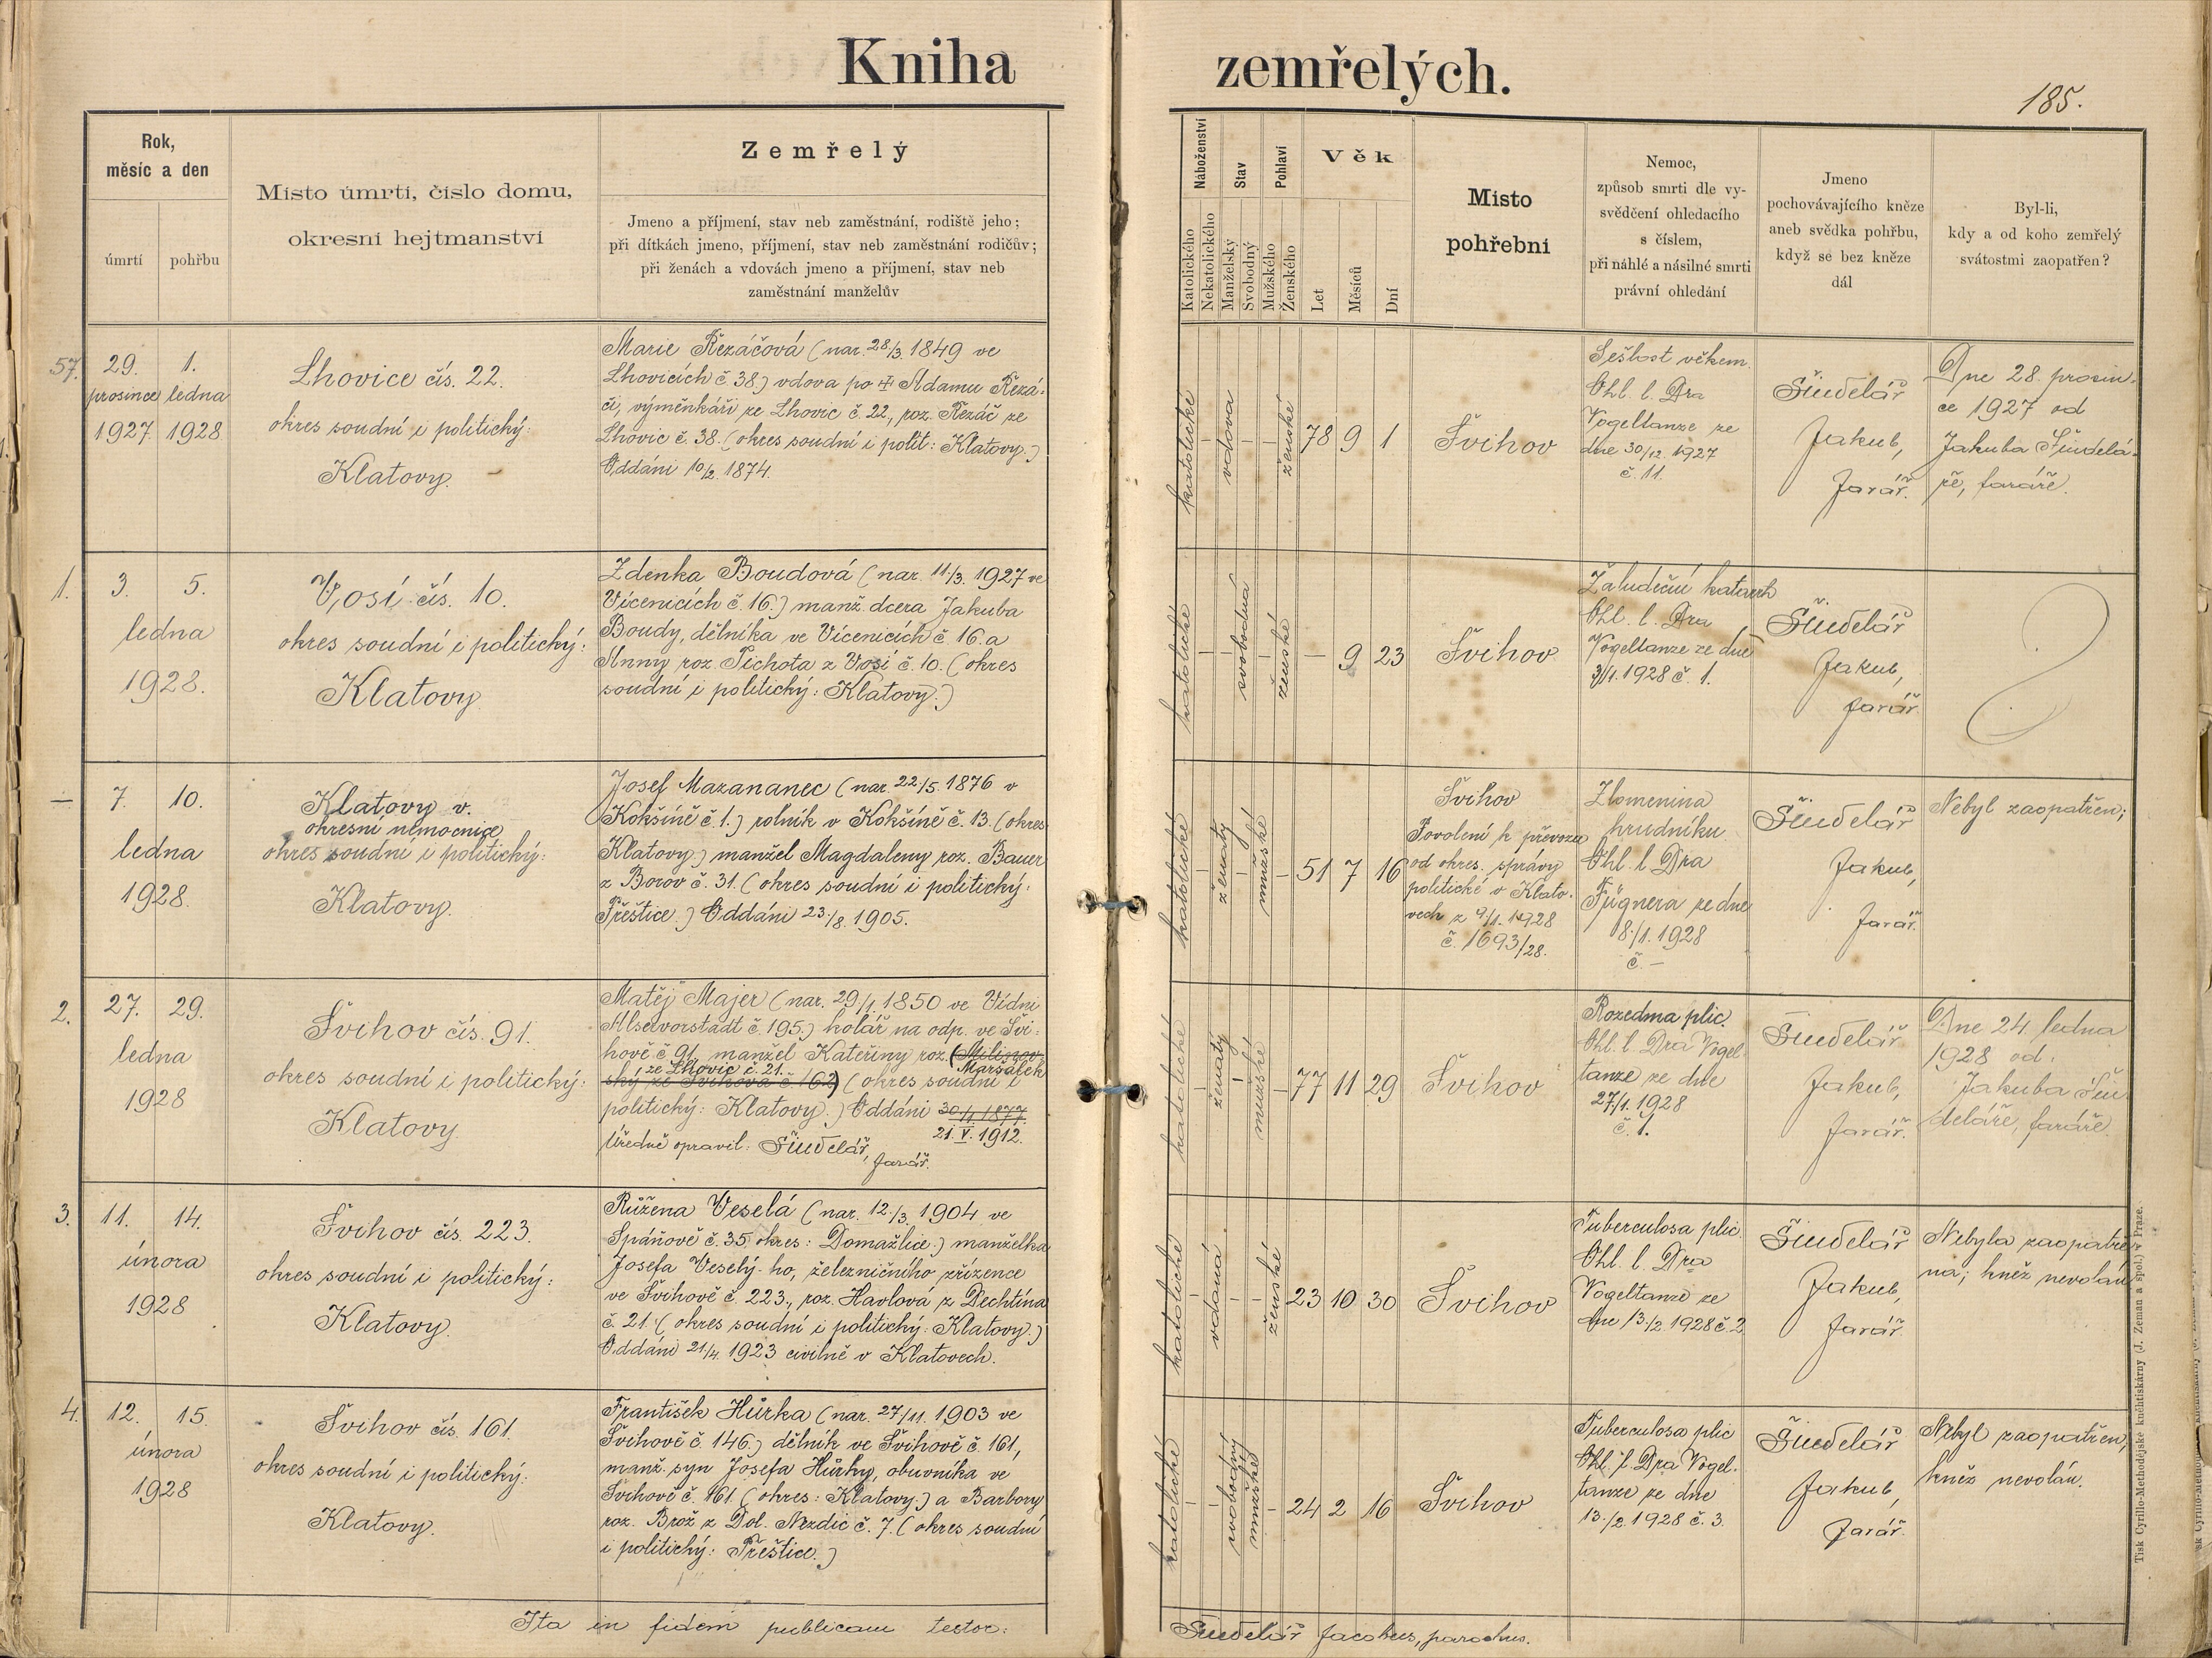 Kniha zemřelých.
185.
Rok,
měsíc a den
úmrtí
pohřbu
Místo úmrtí, číslo domu,
okresní hejtmanství
Zemřelý
Jmeno a příjmení, stav neb zaměstnání, rodiště jeho;
při dítkách jmeno, příjmení, stav neb zaměstnání rodičův;
při ženách a vdovách jmeno a příjmení, stav neb
zaměstnání manželův
Náboženství
Katolického
Nekatolického
Stav
Manželský
Svobodný
Pohlaví
Mužského
Ženského
Věk
Let
Měsíců
Dní
Místo
pohřební
Nemoc,
způsob smrti dle vy-
svědčení ohledacího
s číslem,
při náhlé a násilné smrti
právní ohledání
Jmeno
pochovávajícího kněze
aneb svědka pohřbu,
když se bez kněze
dál
Byl-li,
kdy a od koho zemřelý
svátostmi zaopatřen?
57.
29. 1.
prosince ledna
1927. 1928
Lhovice čís. 22.
okres soudní i politický:
Klatovy.
Marie Řezáčová (nar. 28/3. 1849 ve
Lhovicích č 38.) vdova po Adamu Řezá-
či, výměnkáři ze Lhovic č. 22, roz. Řezáč ze
Lhovic č. 38. (okres soudní i polit: Klatovy.)
Oddáni 10/2. 1874.
katolické
–
vdova
–
–
ženské
78 9 1
Švihov
Sešlost věkem.
Ohl. l. Dra
Vogeltanze ze
dne 30/12. 1927
č. 11.
Šindelář
Jakub,
farář.
Dne 28. prosin-
ce 1927 od
Jakuba Šindelá-
ře, faráře.
1.
3. 5.
ledna
1928.
Vosí čís. 10.
okres soudní i politický:
Klatovy
Zdenka Boudová (nar. 11./3. 1927 ve
Vícenicích č. 16.) manž. dcera Jakuba
Boudy, dělníka ve Vícenicích č 16. a
Anny roz. Tichota z Vosí č. 10. (okres
soudní i politický: Klatovy.)
katolické
–
–
svobodná
–
ženské
– 9 23
Švihov
Žaludeční katarrh
Ohl. l. Dra
Vogeltanze ze dne
3/1. 1928 č. 1.
Šindelář
Jakub,
farář.
–
7. 10.
ledna
1928.
Klatovy v.
okresní nemocnice
okres soudní i politický:
Klatovy.
Josef Mazananec (nar. 22./5. 1876 v
Kokšíně č. 1.) rolník v Kokšíně č. 13. (okres
Klatovy.) manžel Magdaleny roz. Bauer
z Borov č. 31. (okres soudní i politický:
Přeštice.) Oddáni 23./8. 1905.
katolické
–
ženatý
–
mužské
–
51 7 16
Švihov
Povolení k převozu
od okres. správy
politické v Klato-
vech z 9/1. 1928
č. 1693/28.
Zlomenina
hrudníku
Ohl. l. Dra
Fügnera ze dne
8./1. 1928
č. –
Šindelář
Jakub,
farář.
Nebyl zaopatřen;
2.
27. 29.
ledna
1928
Švihov čís. 91.
okres soudní i politický:
Klatovy
Matěj Majer (nar. 29./1. 1850 ve Vídni
Alservorstadt č. 195.) kolář na odp. ve Švi-
hově č 91, manžel Kateřiny roz. (Milinov-
Maršálek
ze Lhovic č. 21.
ský ze Švihova č 162) (okres soudní i
politický: Klatovy.) Oddáni 30/1. 1877.
21. V. 1912.
Úředně opravil: Šindelář,
farář.
katolické
–
ženatý
–
mužské
–
77 11 29
Švihov
Rozedma plic.
Ohl. l Dra Vogel-
tanze ze dne
27/1. 1928
č. 1.
Šindelář
Jakub,
farář.
Dne 24. ledna
1928 od.
Jakuba Šin-
deláře, faráře.
3.
11. 14.
února
1928
Švihov čís. 223.
okres soudní i politický:
Klatovy.
Růžena Veselá (nar. 12./3. 1904 ve
Spáňově č. 35. okres: Domažlice.) manželka
Josefa Veselý-ho, železničního zřízence
ve Švihově č. 223., roz. Havlová z Dechtína
č 21. (okres soudní i politický: Klatovy.)
Oddáni 21/4. 1923 civilně v Klatovech.
katolické
–
vdaná
–
–
ženské
23 10 30
Švihov
Tuberculosa plic.
Ohl. l. Dra
Vogeltanze ze
dne 13./2. 1928 č. 2
Šindelář
Jakub,
farář.
Nebyla zaopatře-
na; kněz nevolán
4.
12. 15.
února
1928
Švihov čís. 161.
okres soudní i politický:
Klatovy.
František Hůrka (nar. 27/11. 1903 ve
Švihově č. 146.) dělník ve Švihově č. 161,
manž. syn Josefa Hůrky, obuvníka ve
Švihově č. 161 (okres: Klatovy.) a Barbory
roz. Brož z Dol. Nezdic č. 7. (okres soudní
i politický: Přeštice.)
katolické
–
–
svobodný
mužské
–
24 2 16
Švihov
Tuberculosa plic
Ohl. l. Dra Vogel-
tanze ze dne
13./2. 1928 č. 3.
Šindelář
Jakub,
farář.
Nebyl zaopatřen,
kněz nevolán.
Ita in fidem publicam testor:
Šindelář Jacobus, parochus.
Tisk Cyrillo-Methodějské knihtiskárny (J. Zeman a spol.) v Praze.